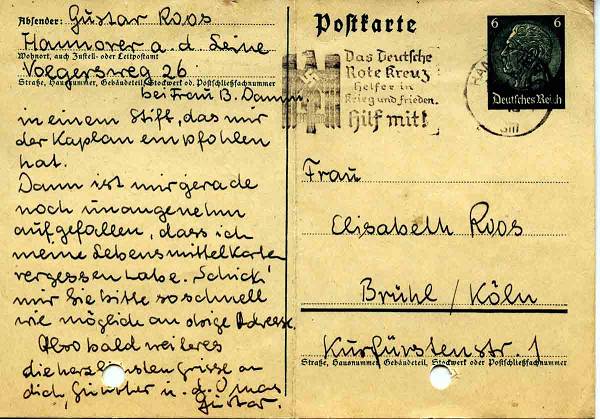 Absender: Gustav Roos
Hannover a. d. Leine
Wohnort, auch Zustell- oder Leitpostamt
Volgersweg 26
Straße, Hausnummer, Gebäudeteil, Stockwerk od. Postschließfachnummer
bei Frau B. Damm,
in einem Stift, das mir
der Kaplan empfohlen
hat.
Dann ist mir gerade
noch unangenehm
aufgefallen, dass ich
meine Lebensmittelkarte
vergessen habe. Schick'
mir Sie bitte so schnell
wie möglich an obige Adresse.
Also bald weiteres
die herzlichsten Grüsse an
dich, Günther u. d. Omas
Gustav.
Postkarte
6 6
Deutsches Reich
Das Deutsche
Rote Kreuz
Helfer in
Krieg und Frieden.
Hilf mit!
Frau
Elisabeth Roos
Brühl / Köln
Kurfürstenstr. 1
Straße, Hausnummer, Gebäudeteil, Stockwerk oder Postschließfachnummer